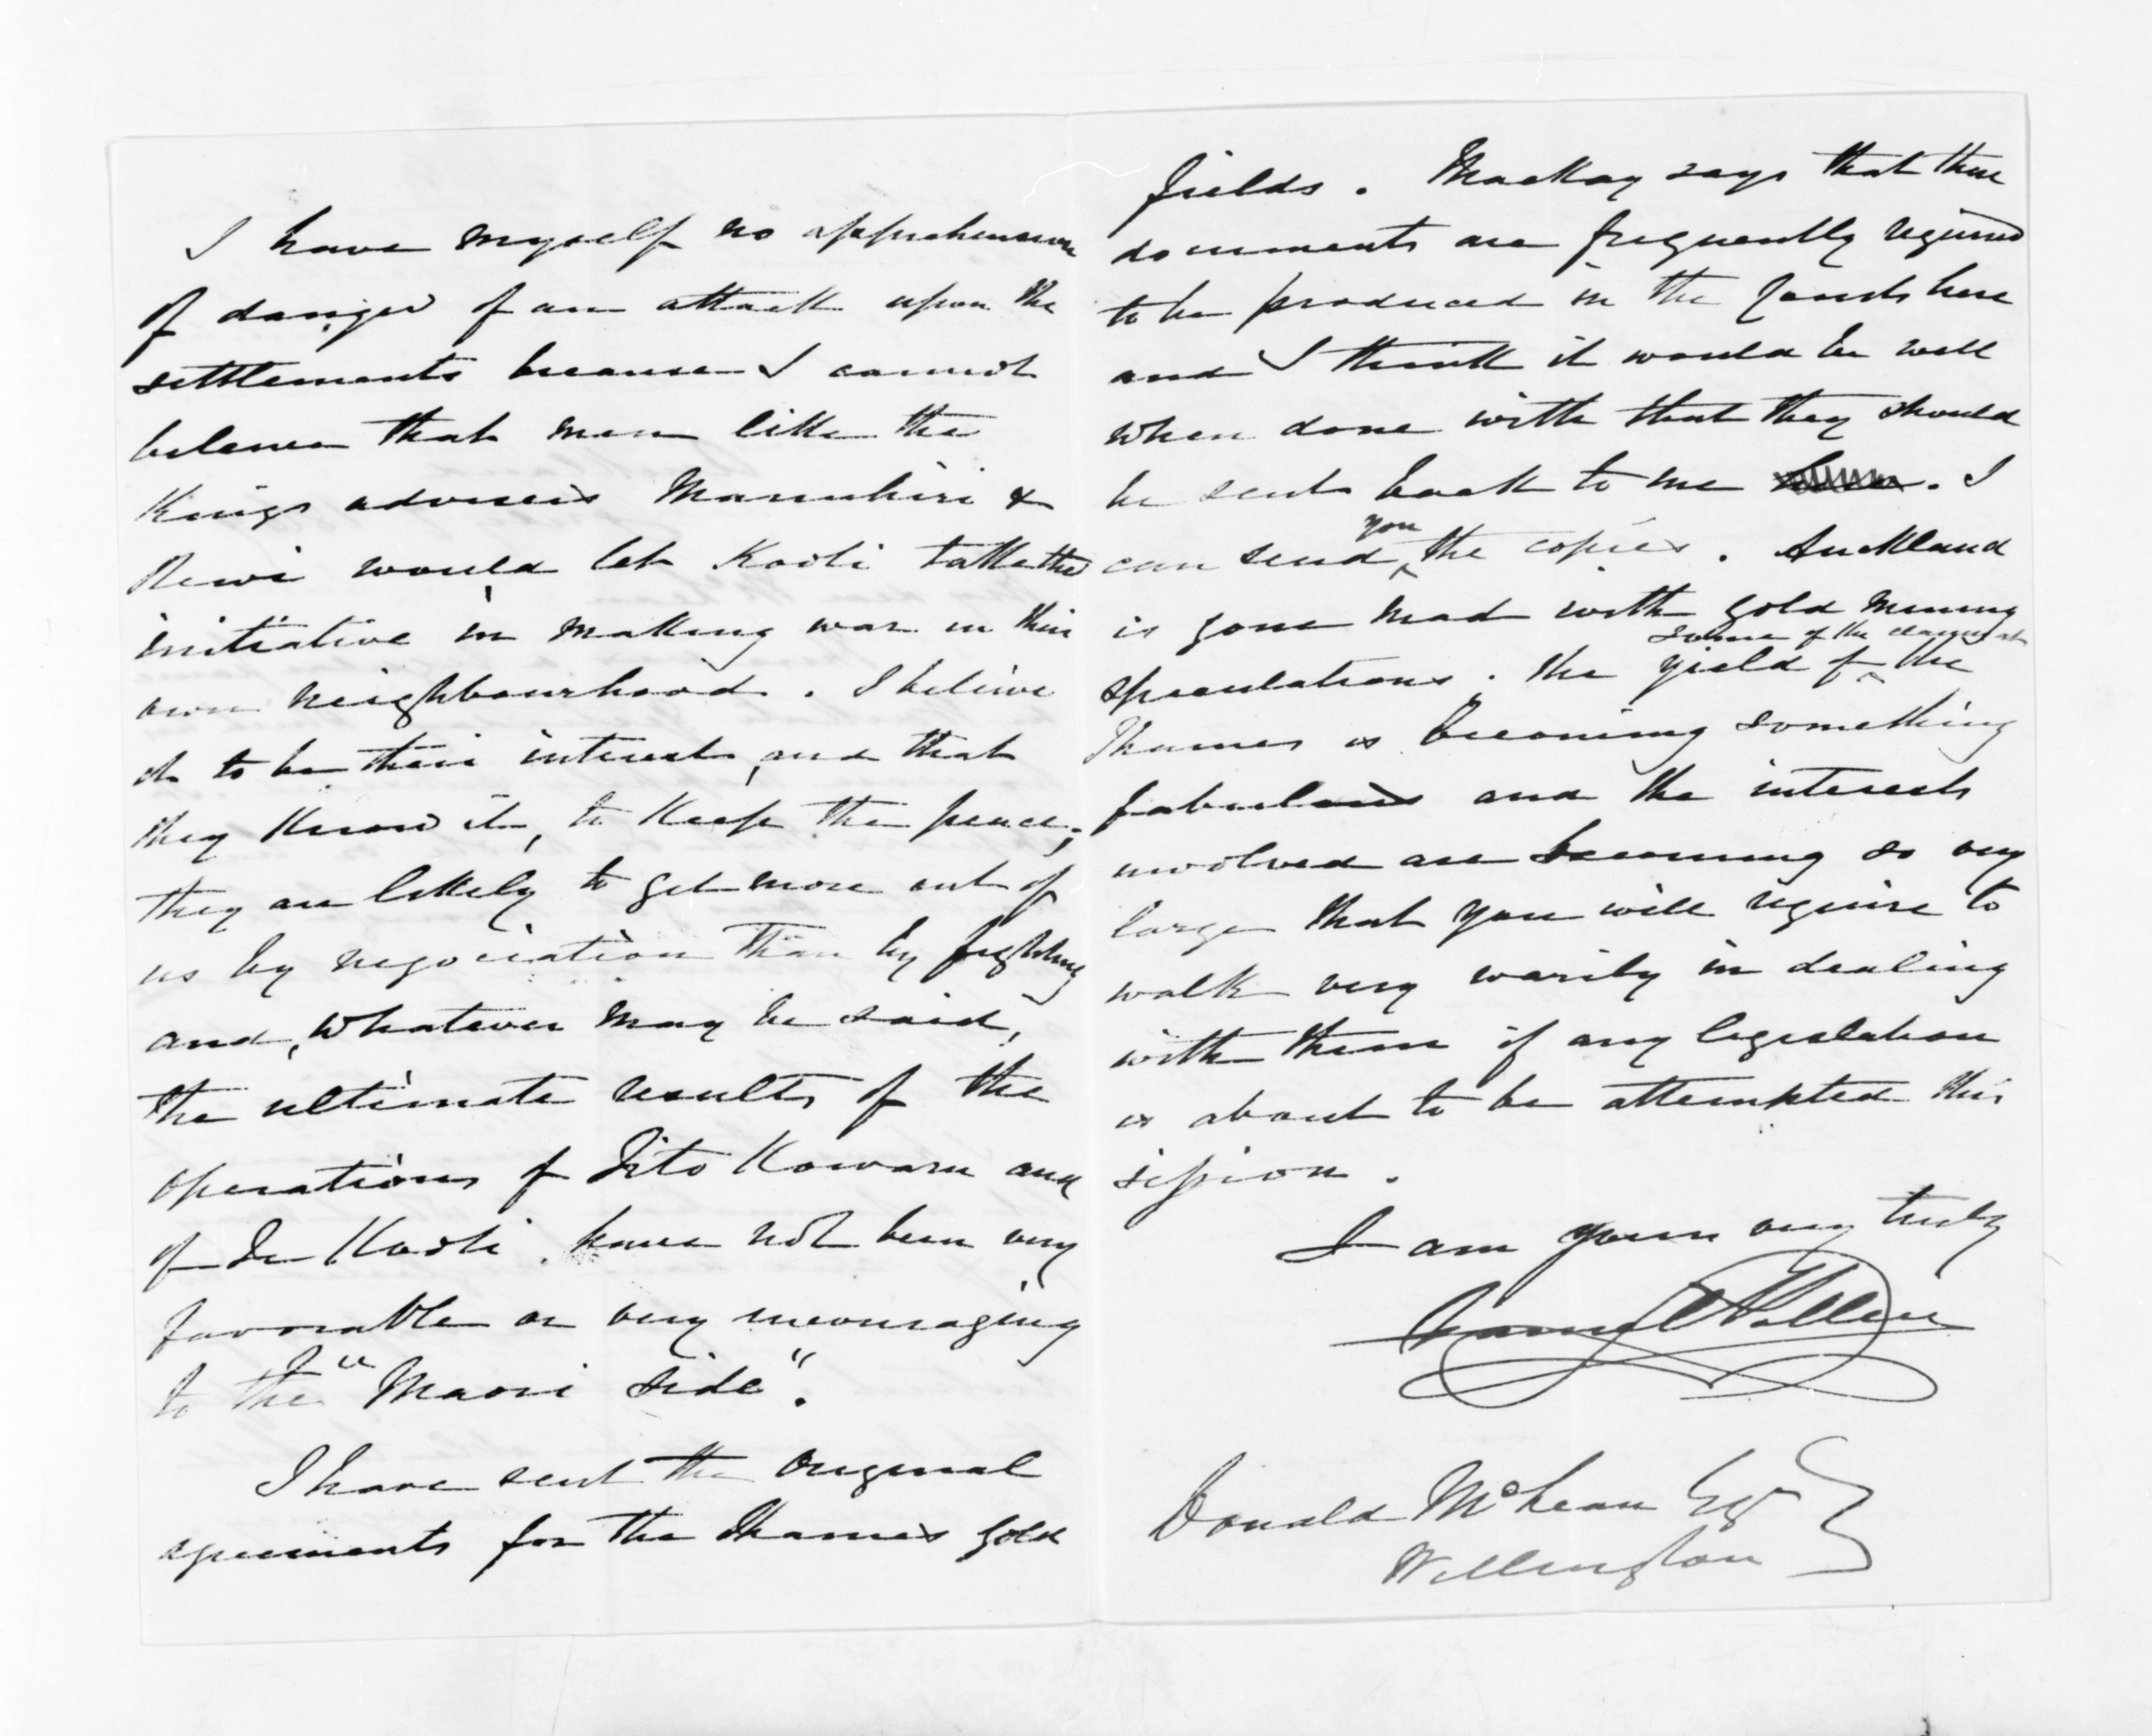 I have myself no apprehension
of danger of an attack upon the
settlements because I cannot
believe that men like the
Kings advisers Manuhiri &
Rewi would let Kooti take the
initiative in making war in their
own neighbourhood. I believe
it to be their interest, and that
they know it, to keep the peace;
they are likely to get more out of
us by negociation than by fighting
and, whatever may be said,
the ultimate results of the
operations of Tito Kowaru and
of Te Kooti have not been very
favorable or very encouraging
to the "Maori side".
I have sent the original
agreements for the Thames gold
fields. Mackay says that these
documents are frequently required
to be produced in the Courts here
and I think it would be well
when done with that they should
be sent back to me. I
can send you the copies. Auckland
is gone mad with gold mining
speculations. The yield of some of the claims at the
Thames is becoming something
fabulous and the interests
involved are becoming so very
large that you will require to
walk very warily in dealing
with them if any legislation
is about to be attempted this
session.
I am yours very truly
Daniel Pollen
Donald McLean Esq
Wellington